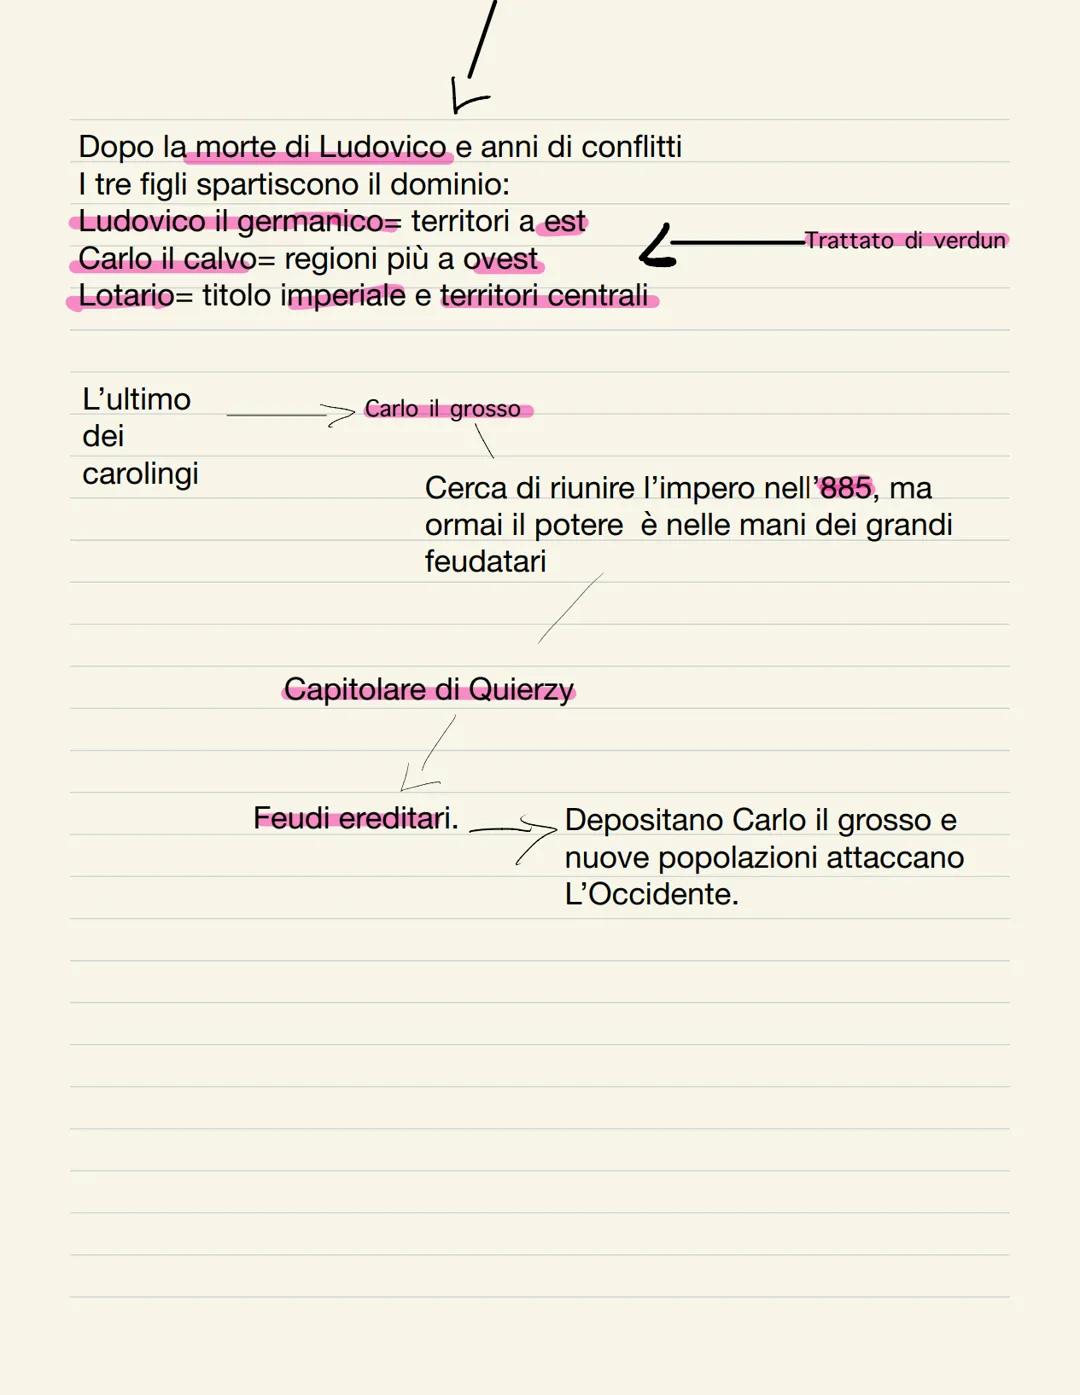 Dopo la morte di Ludovico e anni di conflitti
I tre figli spartiscono il dominio:
Ludovico il germanico= territori a est
Carlo il calvo= regioni più a ovest
Lotario= titolo imperiale e territori centrali
Trattato di verdun
L’ultimo
dei
carolingi
Carlo il grosso
Cerca di riunire l’impero nell’885, ma
ormai il potere è nelle mani dei grandi
feudatari
Capitolare di Quierzy
Feudi ereditari.
Depositano Carlo il grosso e
nuove popolazioni attaccano
L’Occidente.